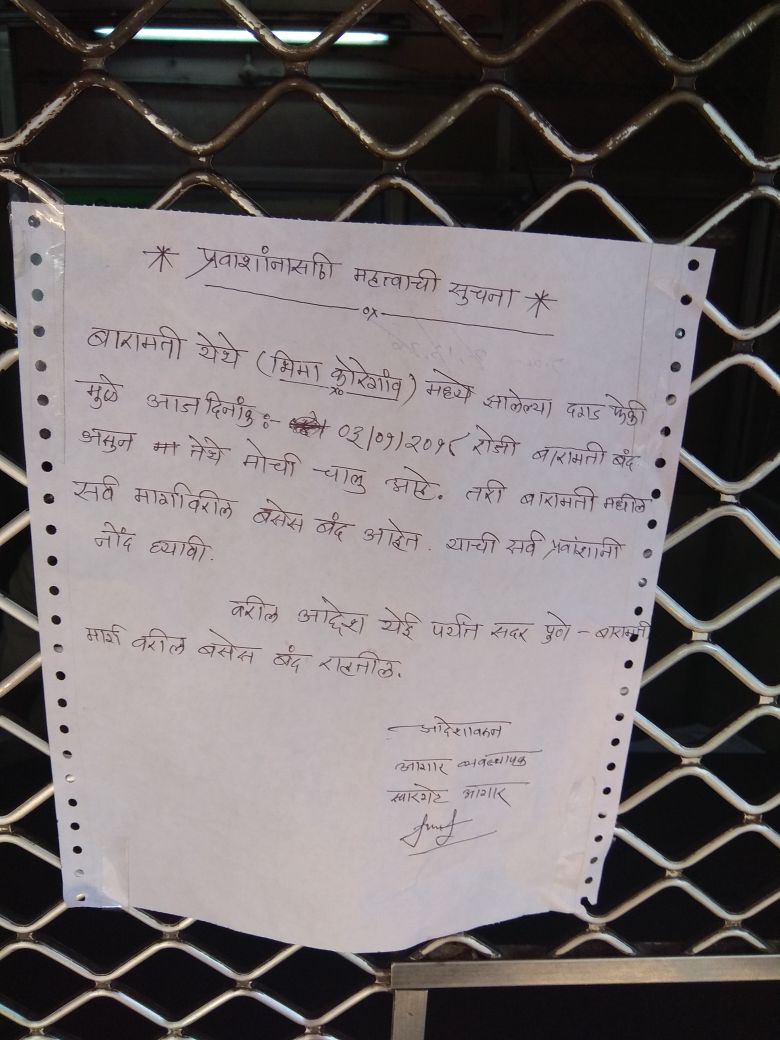 * प्रवाशांनासाठी महत्वाची सुचना *
बारामती येथे (भिमा कोरेगांव) मध्ये झालेल्या दगड फेकी
मुळे आज दिनांक :- 03/09/२०१८ रोजी बारामती बंद
असुन तेथे मोर्चा चालु आहे. तरी बारामती मधील
सर्व मार्गावरील बसेस बंद आहेत. याची सर्व प्रवांशानी
नोंद घ्यावी.
वरील आदेश येई पर्यंत सदर पुणे - बारामती
मार्ग वरील बसेस बंद राहतील.
आदेशावरुन
आगार व्यवस्थापक
स्वारगेट आगार